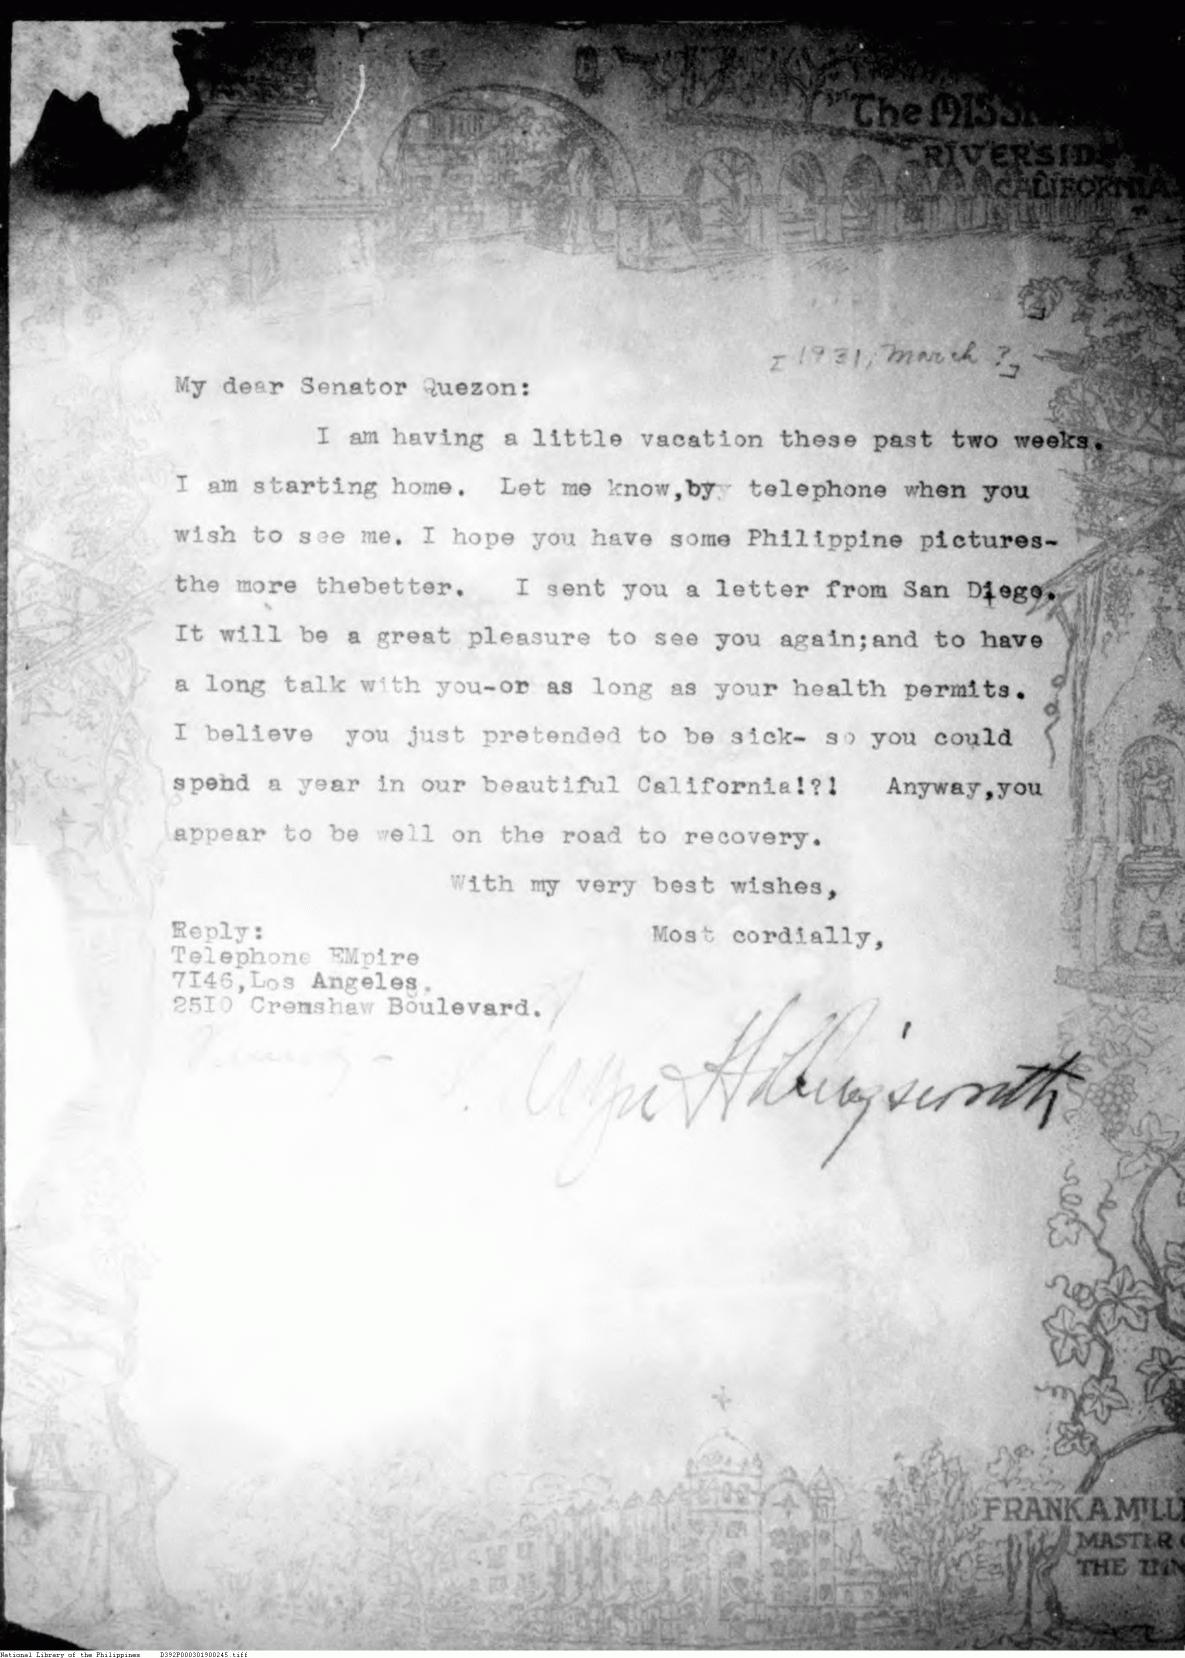 The MISS
RIVERSIDE
CALIFORNIA
[1931, March ?]
My dear Senator Quezon:
I am having a little vacation these past two weeks.
I am starting home. Let me know,by telephone when you
wish to see me. I hope you have some Philippine pictures-
the more thebetter. I sent you a letter from San Diego.
It will be a great pleasure to see you again;and to have
a long talk with you-or as long as your health permits.
I believe you just pretended to be sick- so you could
spend a year in our beautiful California!?! Anyway,you
appear to be well on the road to recovery.
With my very best wishes,
Most cordially,
Reply:
Telephone EMpire
7I46,Los Angeles.
25I0 Crenshaw Boulevard.
Hollingsworth
FRANK A MILL
MASTER O
THE INN
National Library of the Philippines D392P000301900245.tiff